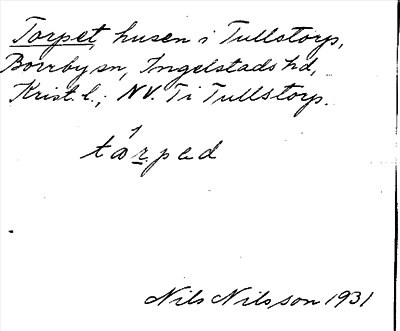 Torpet, husen i Tullstorp,
Borrby sn, Ingelstads hd,
Krist. l.; NV. Ti Tullstorp.
tårped
Nils Nilsson 1931